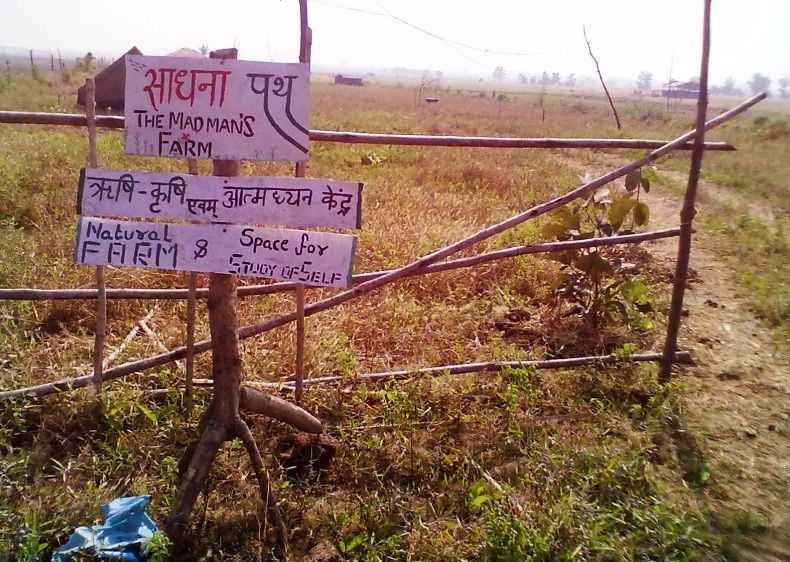 साधना पथ
THE MAD MAN'S
FARM
ऋषि-कृषि एवम् आत्मध्यन केंद्र
Natural
FARM &
Space for
STUDY OF SELF